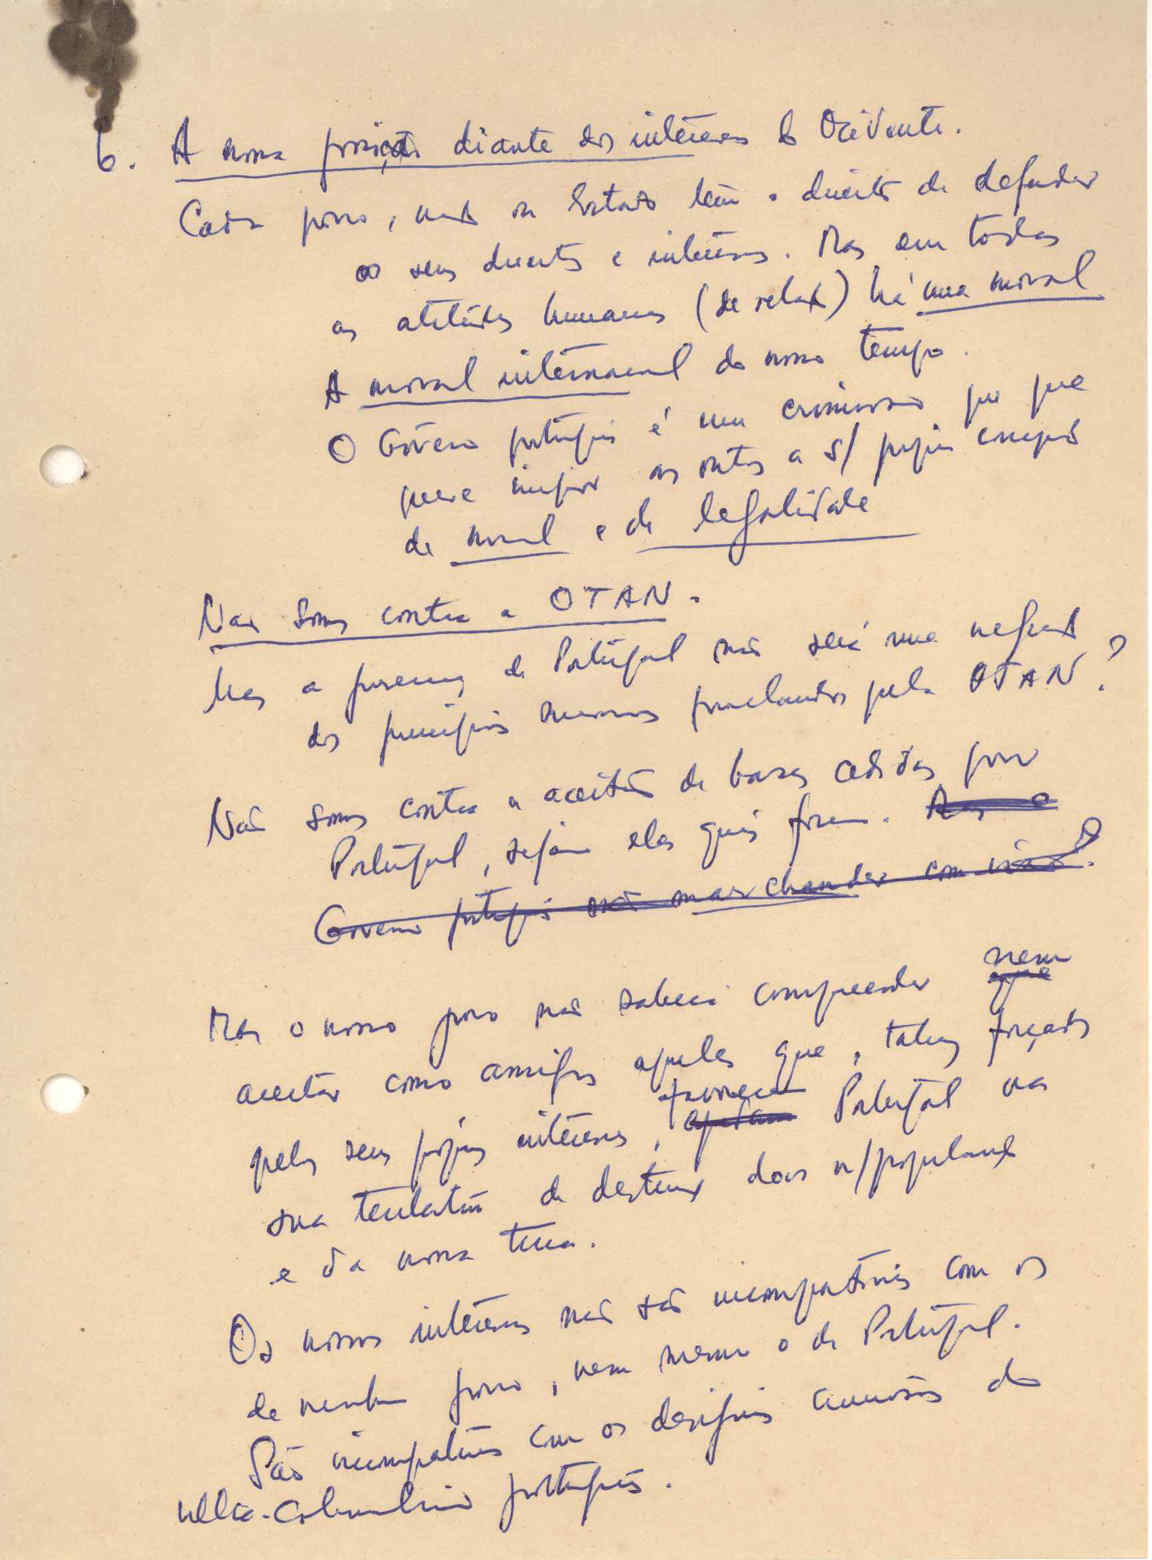 6. A nossa posição diante dos interesses do Ocidente.
Cada povo, cada Estado tem o direito de defender
os seus direitos e interesses. Mas em todas
as atitudes humanas (de relação) há uma moral
A moral internacional do nosso tempo.
O Govêrno português é um criminoso que
quere impor aos outros a s/ própria concepção
de moral e de legalidade
Não somos contra a OTAN.
Mas a presença de Portugal não será uma negação
dos princípios mesmos proclamados pela OTAN?
Não somos contra a aceitação de bases cedidas por
Portugal, sejam elas quais forem. Mas o
Governo português está marchander com isso?
Mas o nosso povo não saberá compreender nem
que
aceitar como amigos aqueles que, talvez forçados
pelos seus próprios interesses, favorecem Portugal na
apoiam
sua tentativa de destruição das n/populações
e da nossa terra.
Os nossos interesses não são incompatíveis com os
de nenhum povo, nem mesmo o de Portugal.
São incompatíveis com os desígnios criminosos do
ultra-colonialismo português.